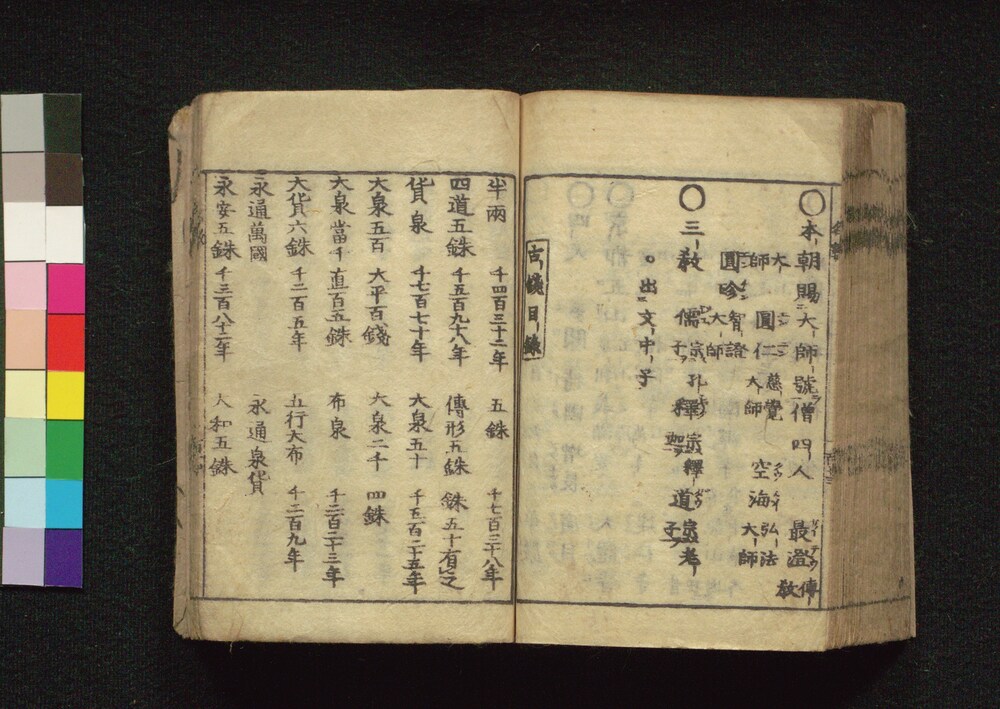 ○本朝賜大師號僧四人 最澄傳教
大師 圓仁慈覺大師 空海弘法大師
圓珍智證大師
○三教 儒宗孔子 釋宗釋迦 道宗老子
○出文中子
古錢目錄
半兩 千四百三十二年 五銖 千七百三十八年
四道五銖 千五百九十八年 傳形五銖 銖五十有之
貨泉 千七百七十年 大泉五十 千五百二十五年
大泉五百 大平百錢 大泉二千 四銖
大泉當千 直百五銖 布泉 千二百二十三年
大貨六銖 千二百五年 五行大布 千二百九年
永通萬國 永通泉貨
永安五銖 千三百八十二年 大和五銖